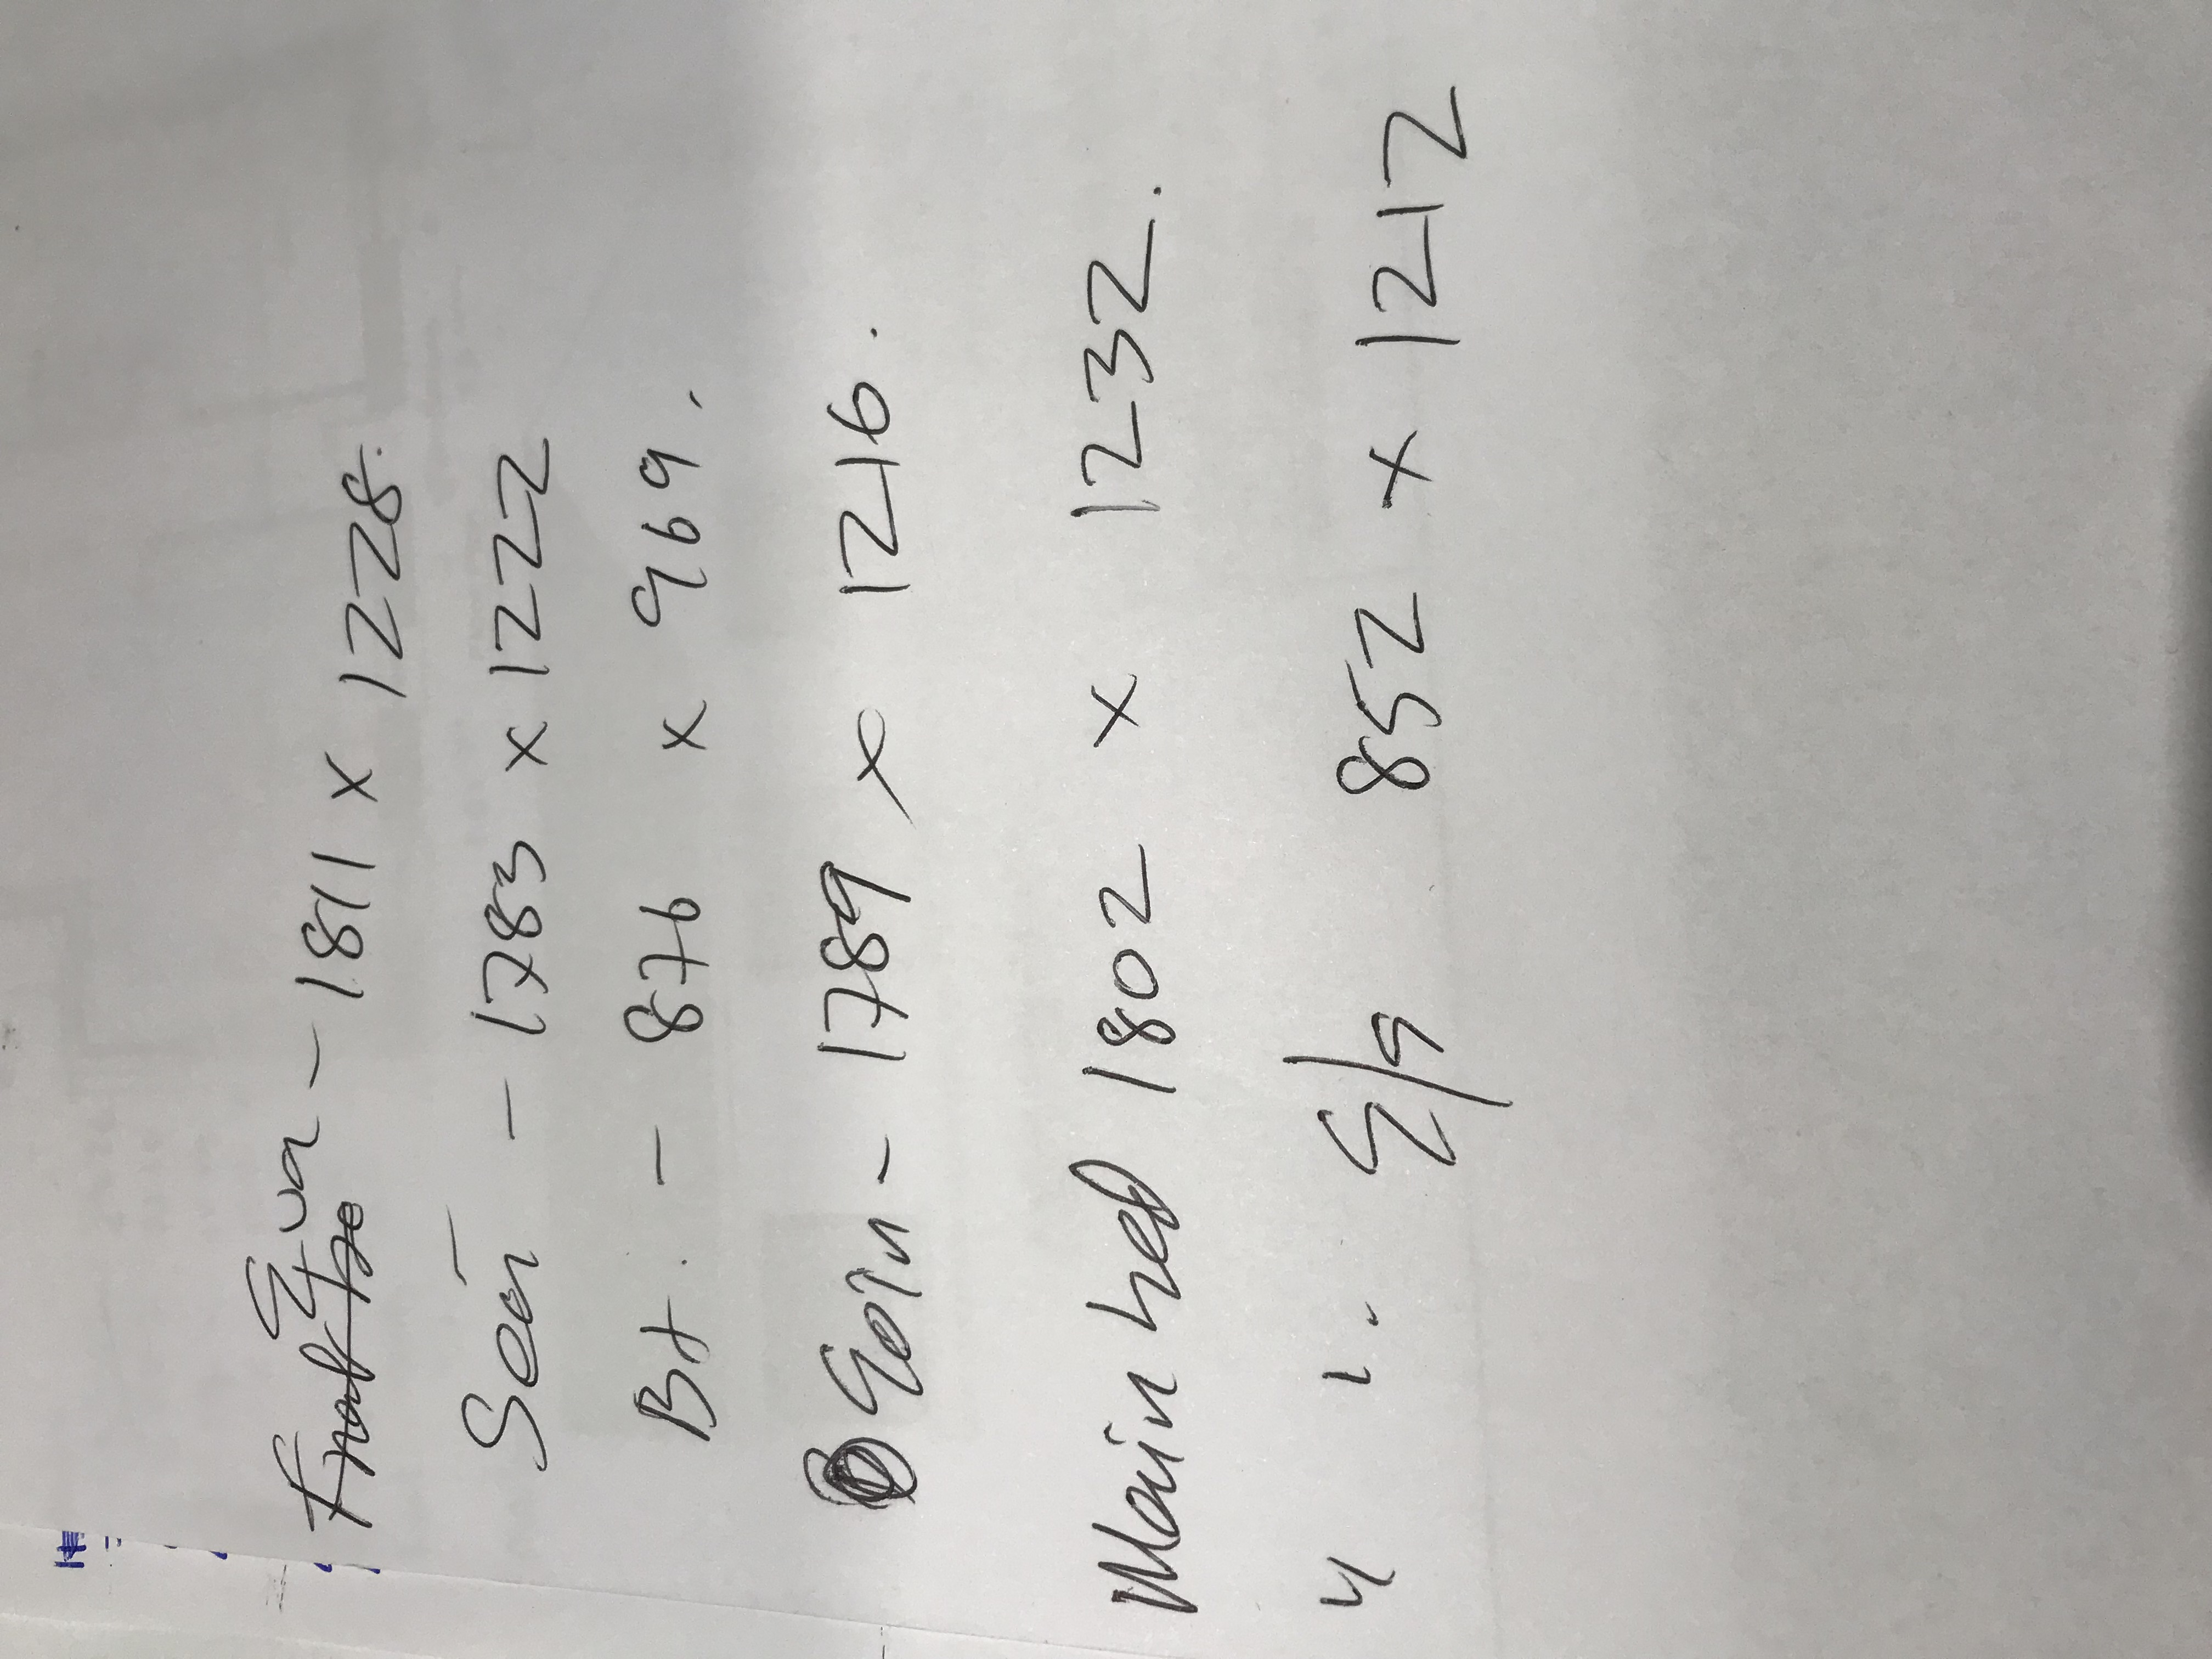 Eva - 1811 x 1228.
Seán - 1783 x 1222
Bt. - 876 x 969.
Eoin - 1789 x 1216.
Main bed 1802 x 1232.
" " E/S 852 x 1212